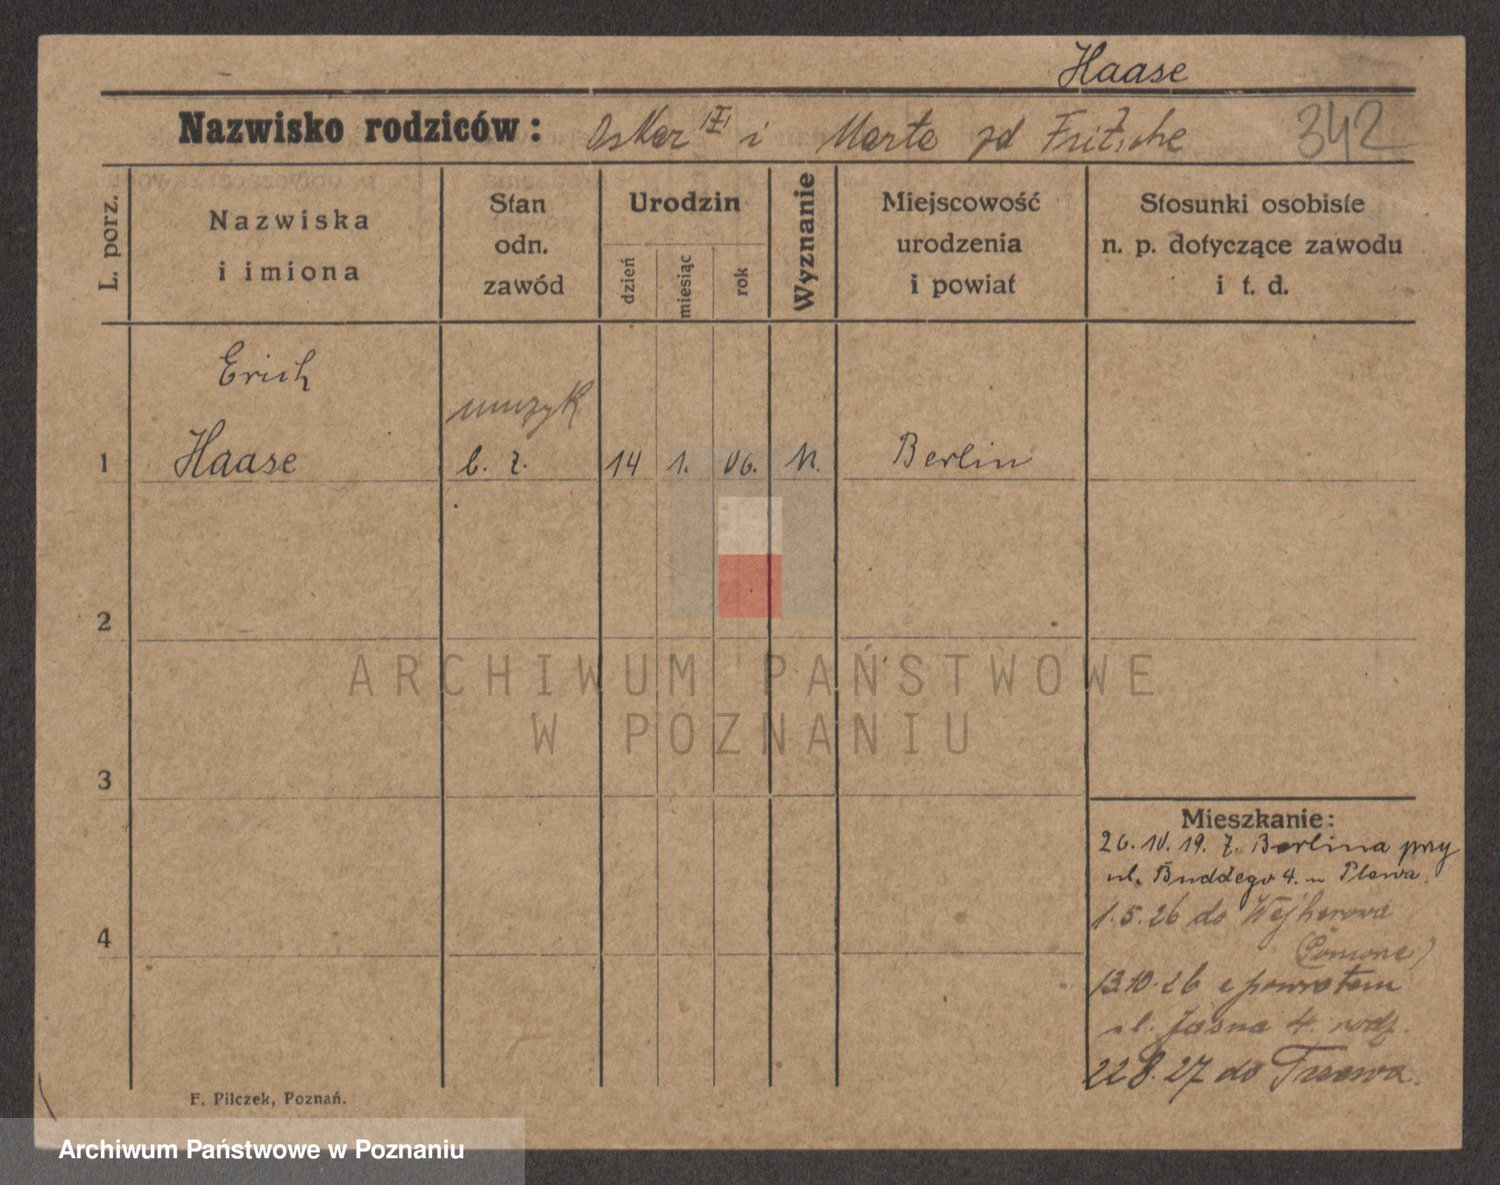 Haase
Nazwisko rodziców: Oskar i Marta zd Fritsche
342
L. porz.
Nazwiska
i imiona
Stan
odn.
zawód
Urodzin
dzień
miesiąc
rok
Wyznanie
Miejscowość
urodzenia
i powiat
Stosunki osobiste
n. p. dotyczące zawodu
i t. d.
Erich
muzyk
1 Haase b. z. 14 1. 06. Berlin
2
3
4
ARCHIWUM PAŃSTWOWE
W POZNANIU
Mieszkanie:
26. 10. 19. z. Berlina przy
ul. Buddego 4. u Plewa.
1.5.26 do Wejherowa
13.10.26 z powrotem
ul. Jasna 4 rodz.
22.8.27 do
F. Pilczek, Poznań.
Archiwum Państwowe w Poznaniu